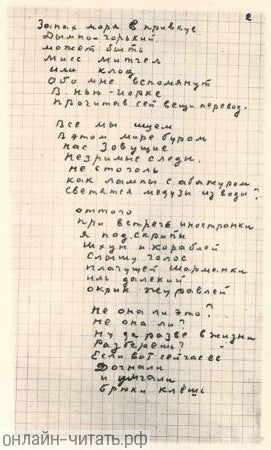 2
Запах моря в привкус
Дымно-горький
может быть
Мисс Митчел
или Клод
Обо мне вспомянут
В Нью-Йорке
Прочитав сей вещи перевод.
Все мы ищем
В этом мире буром
нас зовущие
незримые следы.
не с того ль
как лампы с абажуром
светятся медузы из воды?
оттого
при встрече иностранки
я под скрипы
шхун и кораблей
слышу голос
плачущей шарманки
иль далекий
окрик журавлей
не она ли это?
не она ли?
ну да разве в жизни
разберешь?
Если вот сейчас ее
догнали
и умчали
брюки клёш
онлайн-читать.рф